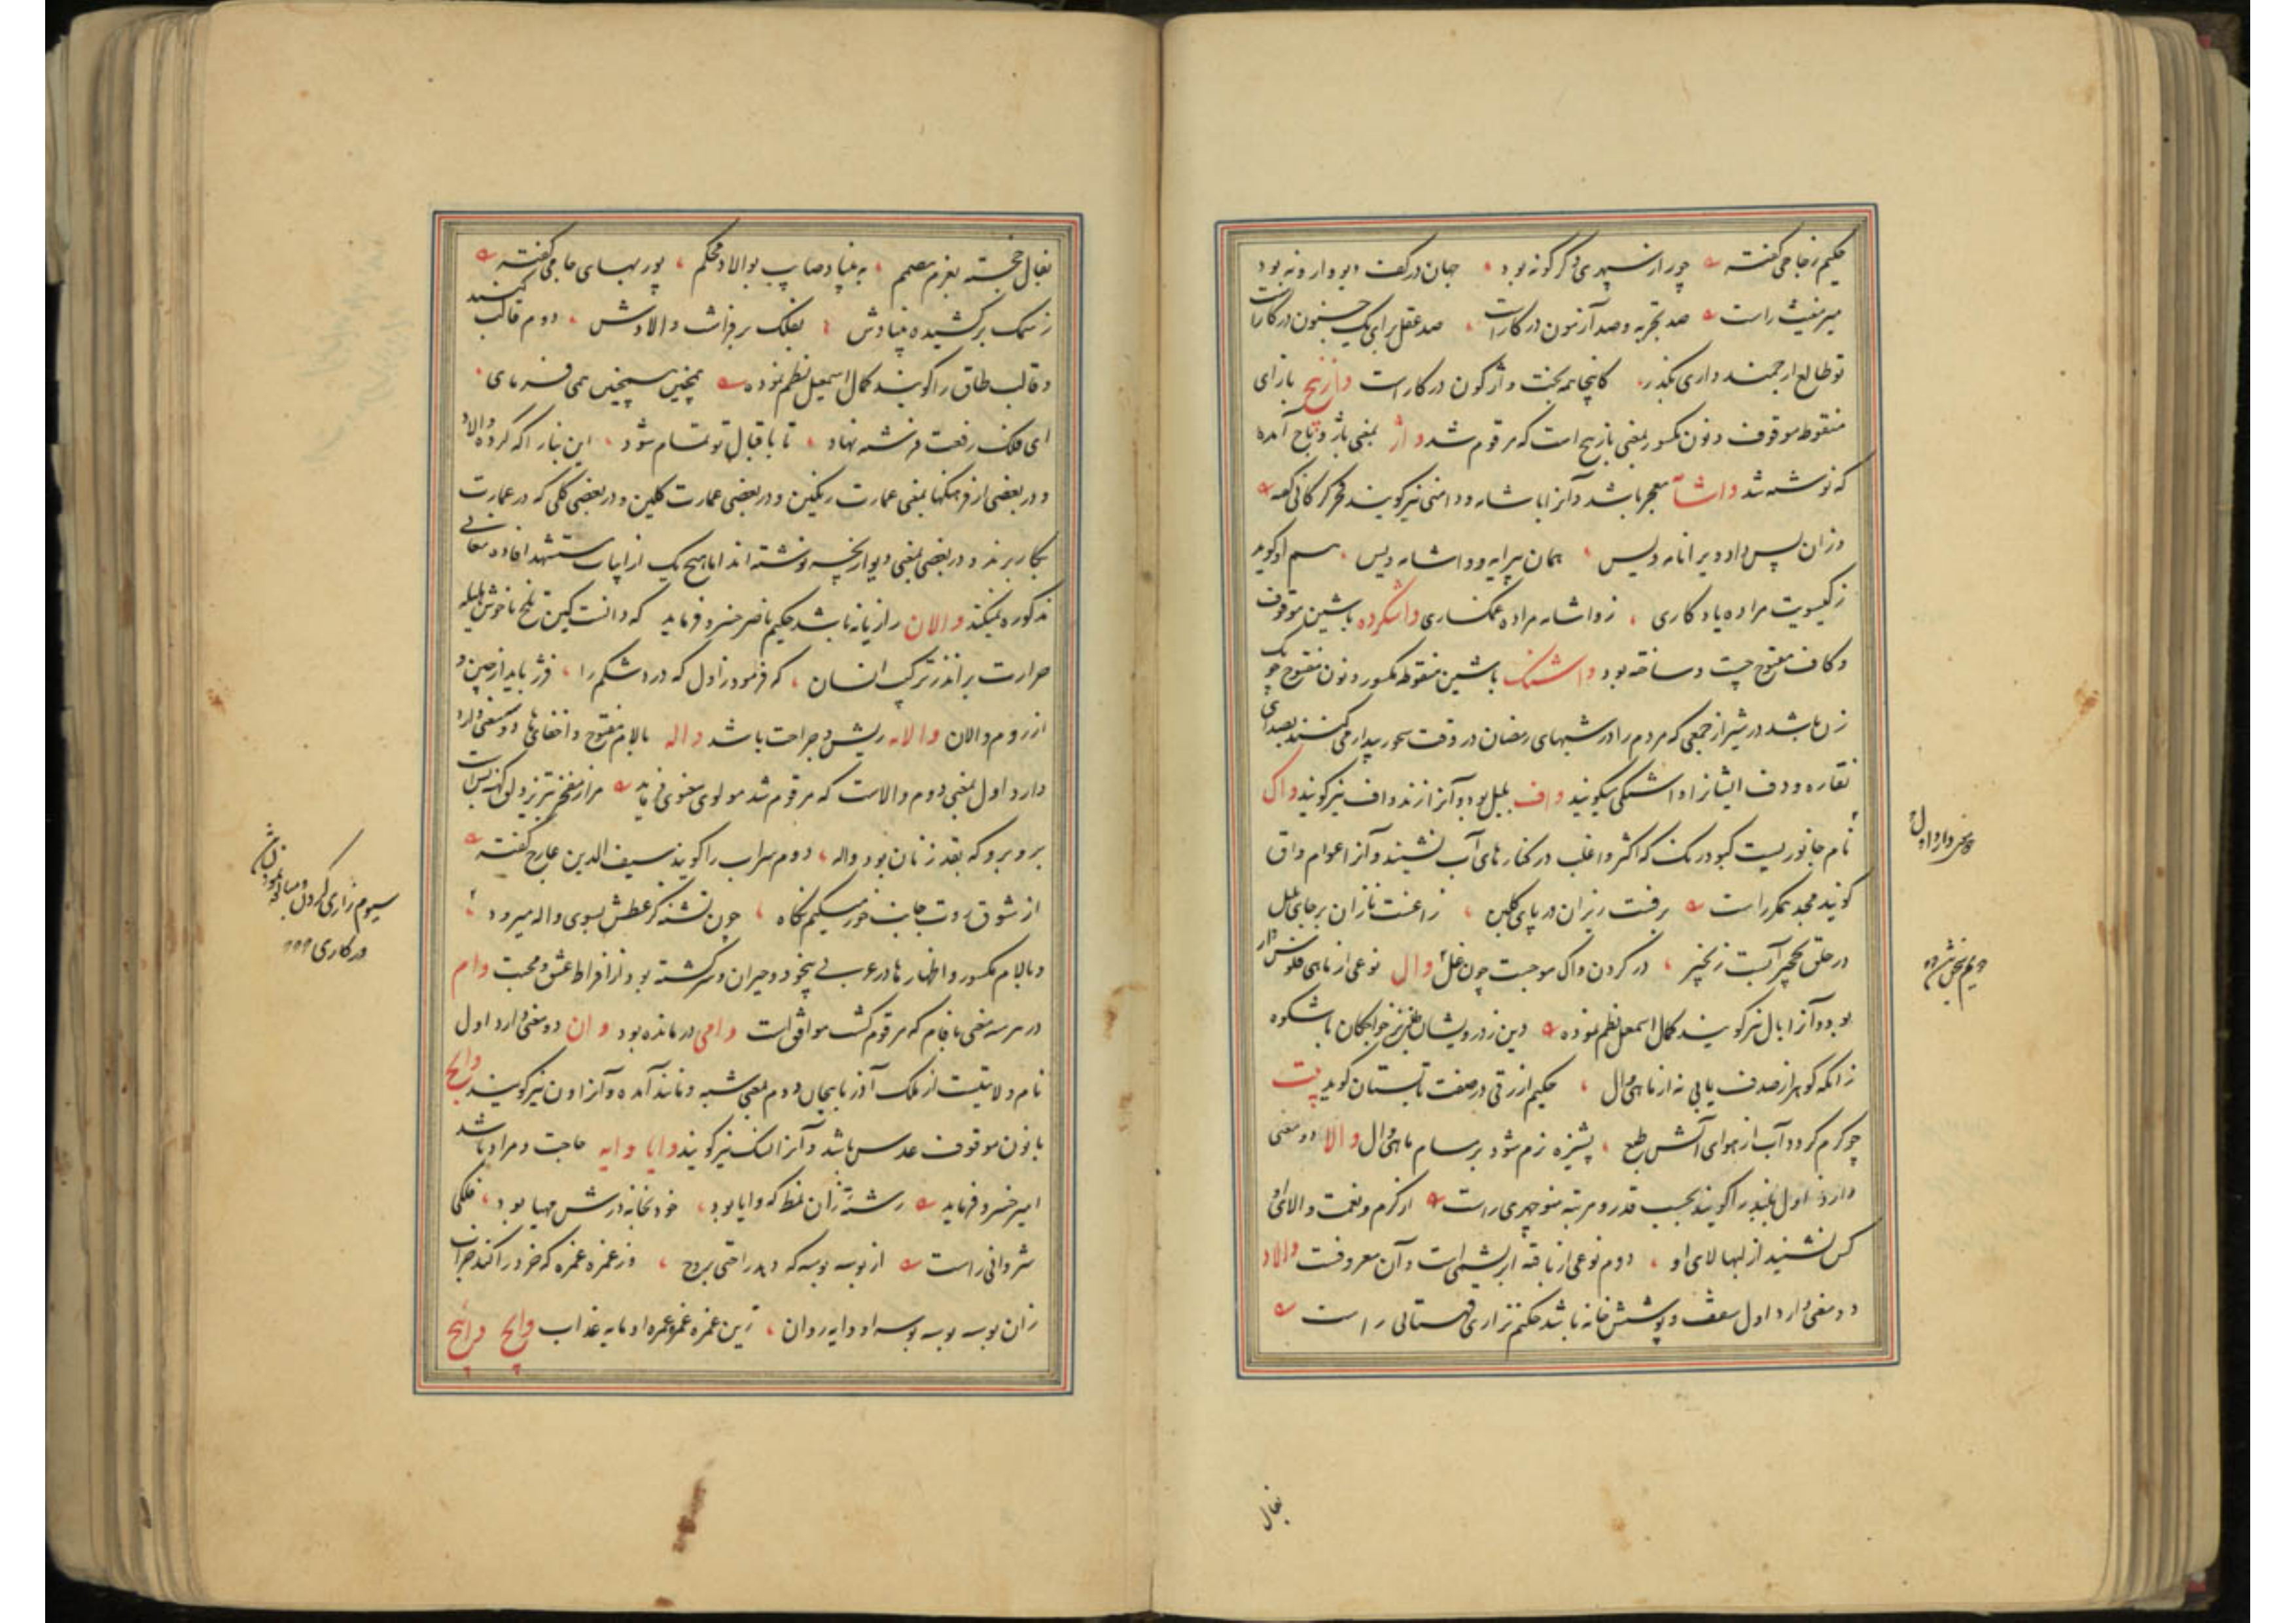 حکیم زجاجی گفته چو راز سپهری دگرگونه بود جهان در کفت دیو وارونه بود
میر مغیث راست صد تجربه و صد آزمون در کارست صد عقل برای یک جنون در کارست
تو طالع ارجمند داری بگذر کاینجا همه بخت واژگون در کارست وازنیج بازای
منقوطه موقوف و نون مکسور بمعنی بازنیج است که مرقوم شد واژ بمعنی باژ و باج آمده
که نوشته شد واشامه معجر باشد و آنرا باشامه و دامنی نیز گویند فخر گرگانی گفته
وزان پس داد ویرا نامه ویس همان پیرایه و واشامه ویس هم او گوید
ز گیسویت مرا ده یادگاری ز واشامه مرا ده غمگساری واشکرده باشین موقوف
و کاف مفتوح چست و ساخته بود باشین منقوطه مکسور و نون مفتوح
زن باشد در شیراز جمعی که مردم را در شبهای رمضان در وقت سحور بیدار می کنند بصدای
نقاره و دف ایشانرا میگویند واف بلبل بود و آنرا زندواف نیز گویند واک
نام جانوریست کبود رنگ که اکثر و اغلب در کنارهای آب نشیند و آنرا عوام واق
گویند مجد همگر راست برفت رزان در پای گلبن زاغنست نازان بر جای بلبل
در حلق آبست زنجیر در گردن واک موجست چون غل وال نوعی از ماهی فلوس دار
بود و آنرا بال نیز گویند کمال اسمعیل نظم نموده دین ز درویشان طلب نز خواجگان باشکوه
زانکه گوهر از صدف یابی نه از ماهی وال حکیم ازرقی در صفت تابستان گوید بیت
چو گرم گردد آب از هوای آتش طبع پشیزه نرم شود بر مسام ماهی وال والا دو معنی
دارد اول بلند را گویند بحسب قدر و مرتبه منوچهری راست از کرم و نعمت والای او
کس نشنید از لبها لای او دوم نوعی از بافته ابریشمی است و آن معروفست والاد
دو معنی دارد اول سقف و پوشش خانه باشد حکیم نزاری قهستانی راست
بفال
بفال خجسته بعزم مصمم به بنیاد صایب بوالاد محکم پور بهای جامی گفته
ز سمک برکشیده بنیادش بفلک برفراشت والادش دوم قالب گنبد
و قالب طاق را گویند کمال اسمعیل نظم نموده همچنین همی فرمای
ای فلک رفعت فرشته نهاد تا باقبال تو تمام شود این بنا را که کرده والاد
و در بعضی از فرهنگها بمعنی عمارت رنگین و در بعضی عمارت گلین و در بعضی گلی که در عمارت
بکار برند و در بعضی بمعنی دیوار چینه نوشته اند اما هیچ یک از ابیات مستشهد افاده معانی
مذکوره نمیکند والان رازیانه باشد حکیم ناصر خسرو فرماید که دانست کین تلخ ناخوش هلیله
حرارت براند ز ترکیب انسان که فرمود از اول که درد شکم را پژ باید از چین و
از روم والان والانه ریش و جراحت باشد واله بالام مفتوح و اخفای ها دو معنی دارد
دارد اول بمعنی دوم والاست که مرقوم شد مولوی معنوی فرماید مرا ز مفخر تبریز
برو برو که بقد زنان بود واله دوم سراب را گویند سیف الدین اعرج گفته
از شوق روت جانب خور میکنم نگاه چون تشنه کز عطش بسوی واله میرود
و بالام مکسور و اظهار ها در عربی بیخود و حیران و سرگشته بود از افراط عشق و محبت وام
در هر سه معنی با فام که مرقوم گشت موافق است وامی درمانده بود وان دو معنی دارد اول
نام ولایتیست از ملک آذربایجان دوم بمعنی شبه و مانند آمده و آنرا ون نیز گویند وانج
بانون موقوف عدس باشد و آنرا نیز گویند وایا وایه حاجت و مراد باشد
امیر خسرو فرماید رشته زان نمط که وایا بود خود بخانه درش مهیا بود فلکی
شروانی راست از بوسه بوسه که دهد راحتی بروح وز غمزه غمزه که خرد را کند خراب
زان بوسه بوسه بوسه او وایه روان زین غمزه غمزه غمزه او مایه عذاب
سیوم زاری کردن و مبالغه نمودن باشد
در کاری